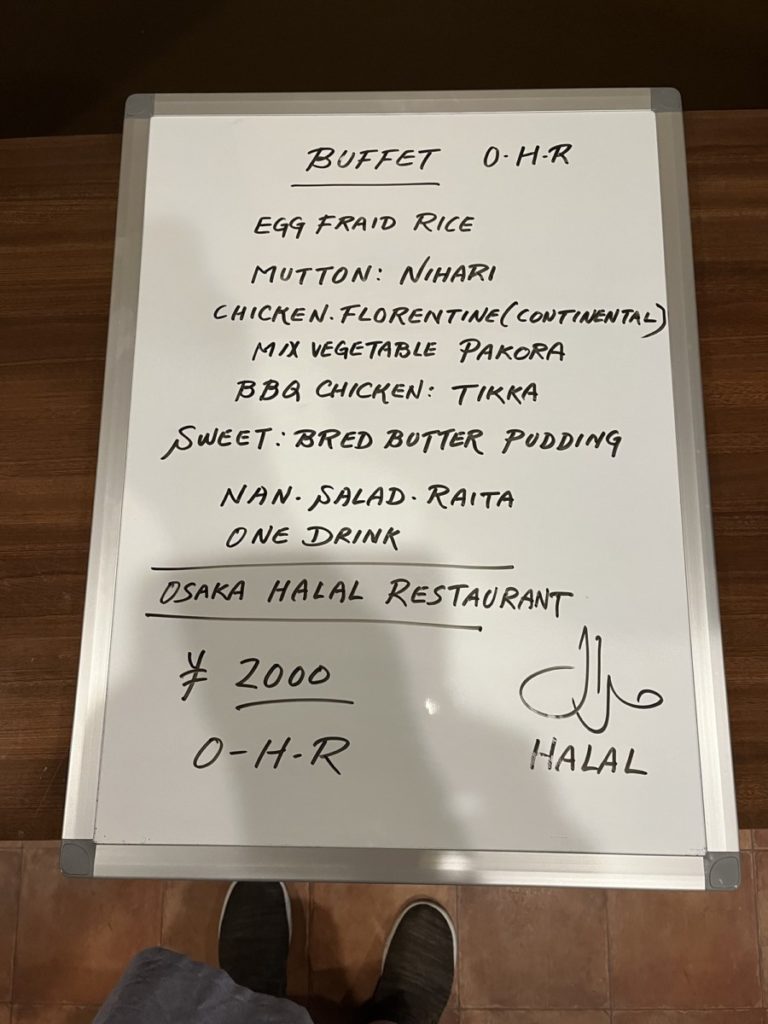 BUFFET O-H-R
EGG FRAID RICE
MUTTON: NIHARI
CHICKEN. FLORENTINE (CONTINENTAL)
MIX VEGETABLE PAKORA
BBQ CHICKEN: TIKKA
SWEET: BRED BUTTER PUDDING
NAN. SALAD. RAITA
ONE DRINK
OSAKA HALAL RESTAURANT
¥ 2000
O-H-R
حلال
HALAL